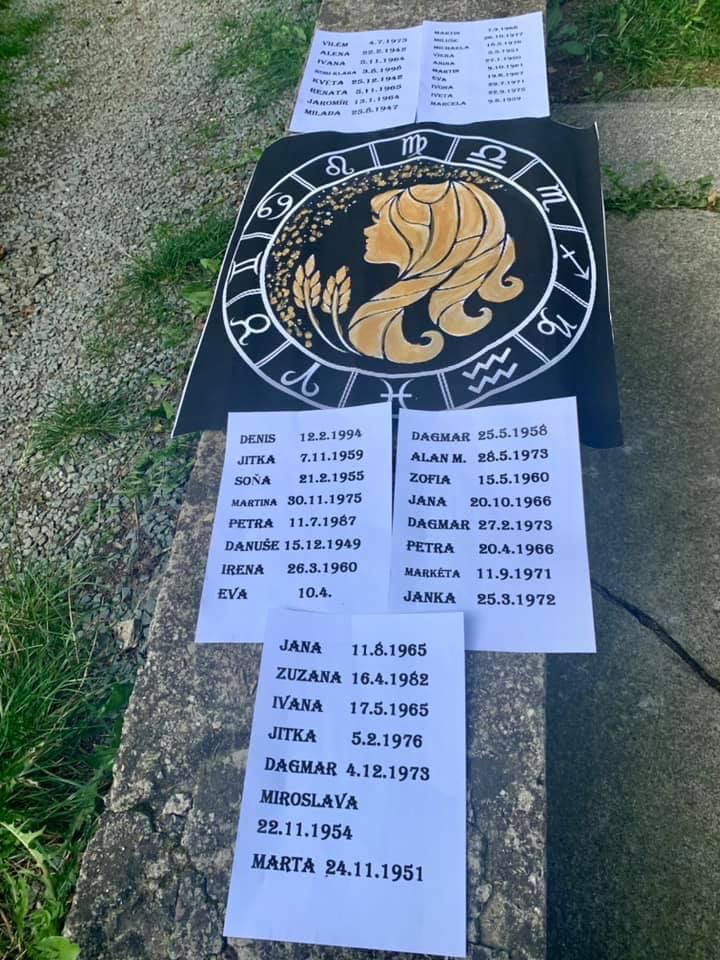 VILÉM 4.7.1973
ALENA 22.2.1942
IVANA 5.11.1964
3.6.1998
KVĚTA 25.12.1942
RENATA 5.11.1965
JAROMÍR 13.1.1964
MILADA 25.8.1947
MARTIN 7.9.1968
26.10.1977
MICHAELA
VIERA
MARTIN 9.10.1961
EVA 19.8.1967
IVONA 29.7.1971
IVETA 22.9.1975
MARCELA 9.8.1959
DENIS 12.2.1994
JITKA 7.11.1959
SOŇA 21.2.1955
MARTINA 30.11.1975
PETRA 11.7.1987
DANUŠE 15.12.1949
IRENA 26.3.1960
EVA 10.4.
DAGMAR 25.5.1958
ALAN M. 28.5.1973
ZOFIA 15.5.1960
JANA 20.10.1966
DAGMAR 27.2.1973
PETRA 20.4.1966
MARKÉTA 11.9.1971
JANKA 25.3.1972
JANA 11.8.1965
ZUZANA 16.4.1982
IVANA 17.5.1965
JITKA 5.2.1976
DAGMAR 4.12.1973
MIROSLAVA
22.11.1954
MARTA 24.11.1951